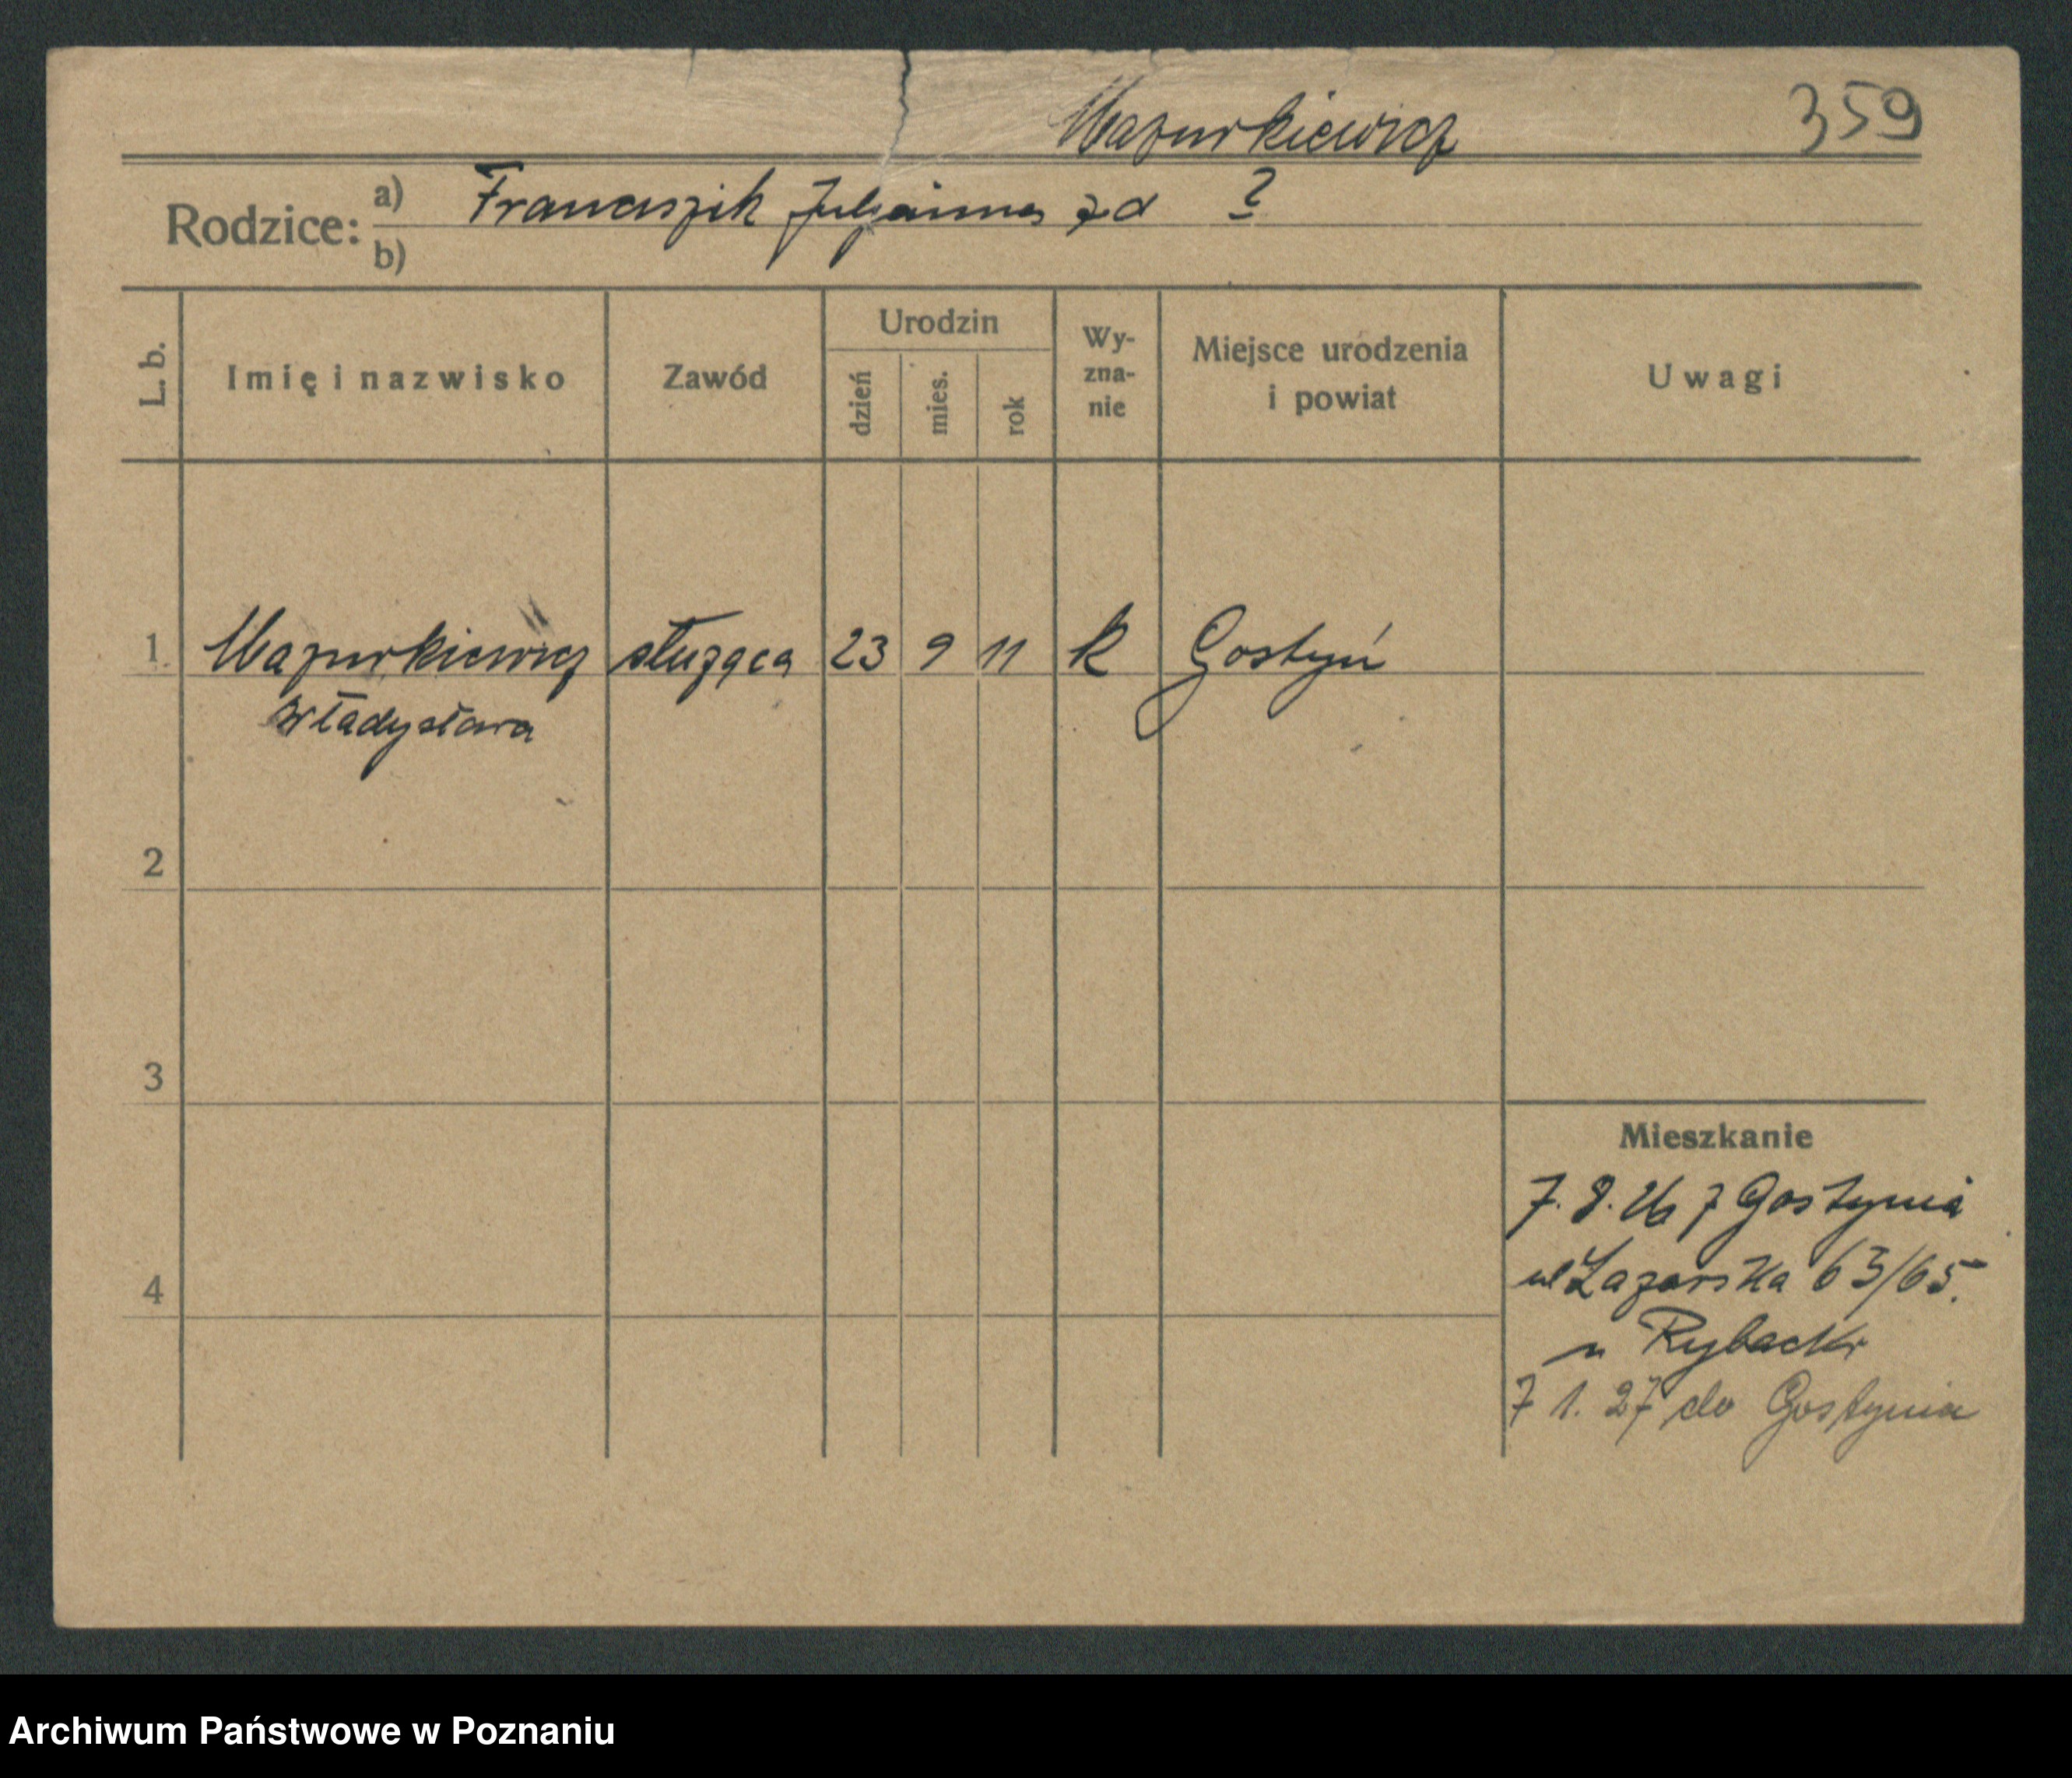 Mazurkiewicz
359
Rodzice: a) Franciszek Juljanna zd ?
b)
L. b.
Imię i nazwisko
Zawód
Urodzin
dzień
mies.
rok
Wy-
zna-
nie
Miejsce urodzenia
i powiat
Uwagi
1. Mazurkiewicz służąca 23 9 11 k Gostyń
Władysława
2
3
Mieszkanie
7. 8. 26 z Gostynia
4
ul Łazarska 63/65.
u Rybacki
7 1. 27 do Gostynia
Archiwum Państwowe w Poznaniu